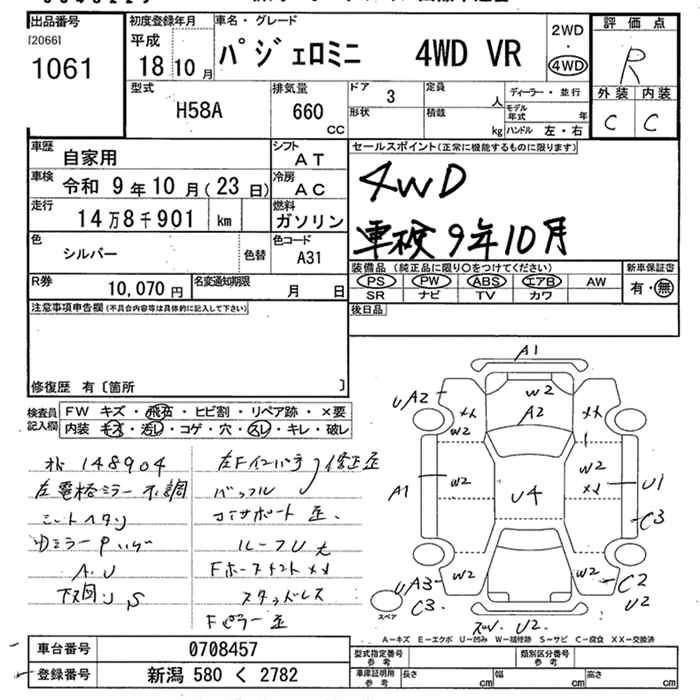 出品番号
[2066]
1061
初度登録年月
平成
18 10 月
車名・グレード
パジェロミニ 4WD VR
2WD
・
4WD
評価点
R
外装 内装
C C
型式
H58A
排気量
660
CC
ドア 3
定員
人
形状
積載
kg
ディーラー・並行
モデル年式 年
ハンドル 左・右
車歴
自家用
シフト
AT
車検 令和 9 年 10 月 ( 23 日)
冷房
AC
走行
14万8千901 km
燃料
ガソリン
色
シルバー
色替
色コード
A31
R券
10,070 円
名変通知期限
月 日
セールスポイント(正常に機能するものに限ります)
4WD
車検9年10月
装備品 (純正品に限り〇をつけてください)
新車保証書
PS PW ABS エアB AW
有・無
SR ナビ TV カワ
後日品
注意事項申告欄(不具合内容等は具体的に記入して下さい)
修復歴 有〔箇所 〕
検査員記入欄
FW キズ・飛石・ヒビ割・リペア跡・×要
内装 キズ・汚レ・コゲ・穴・スレ・キレ・破レ
148904
左電格ミラー不調
シートヘタリ
A.U
下回り S
左Fインパネ 修正歪
バックル
コアサポート歪.
ルーフU大
スタッドレス
Fピラー歪
A1
UA2
W2
A2
W2
W2
W2
A1
U4
U1
C3
UA3
W2
W2
C2
C3
U2
U2
スペア
A−キズ E−エクボ U−凹み W−補修跡 S−サビ C−腐食 XX−交換済
車台番号 0708457
登録番号 新潟 580 く 2782
型式指定番号
参考
類別区分番号
参考
車庫証明用
参考
長さ cm
幅 cm
高さ cm